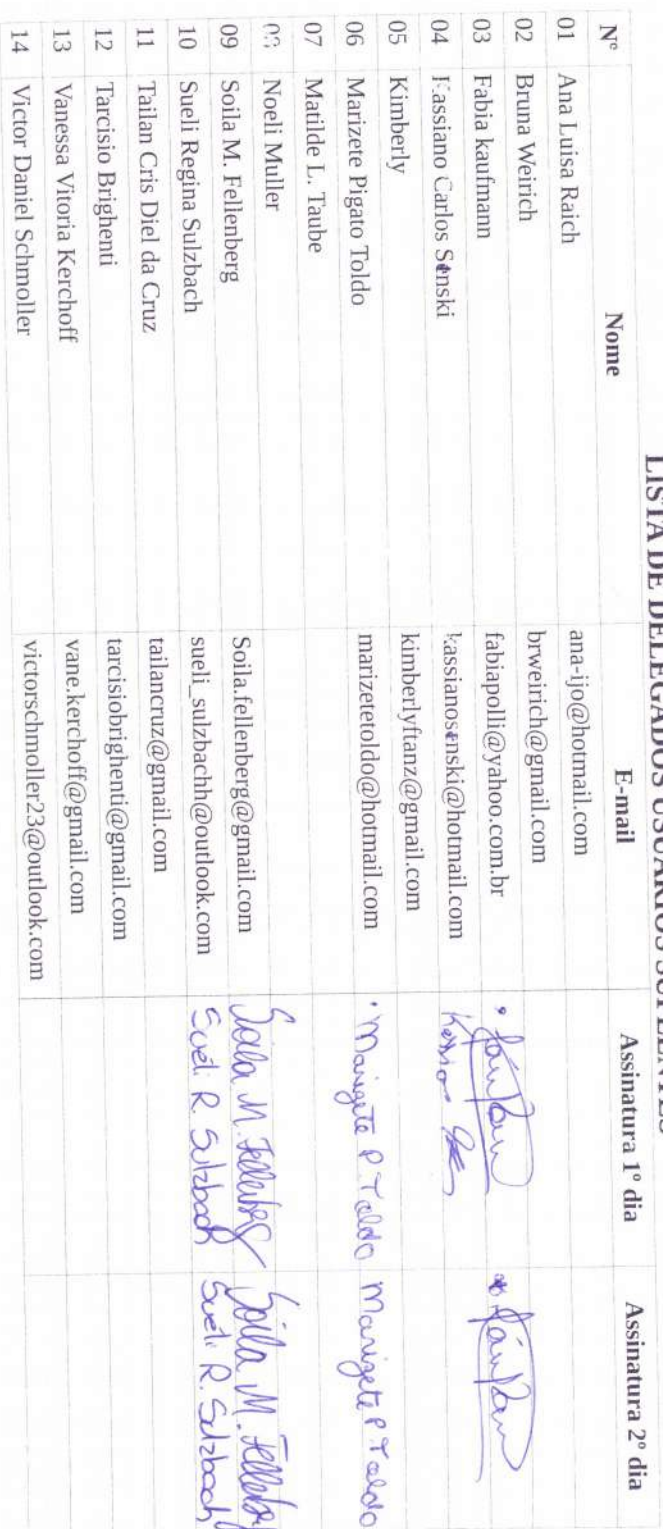 LISTA DE DELEGADOS USUÁRIOS SUPLENTES
Nº Nome E-mail Assinatura 1º dia Assinatura 2º dia
01 Ana Luisa Raich ana-ijo@hotmail.com
02 Bruna Weirich brweirich@gmail.com
03 Fabia kaufmann fabiapolli@yahoo.com.br
04 Kassiano Carlos Senski kassianosenski@hotmail.com
05 Kimberly kimberlyftanz@gmail.com
06 Marizete Pigato Toldo marizetetoldo@hotmail.com Marizete P. Toldo Marizete P Toldo
07 Matilde L. Taube
08 Noeli Muller
09 Soila M. Fellenberg Soila.fellenberg@gmail.com Soila M. Fellenberg Soila M. Fellenberg
10 Sueli Regina Sulzbach sueli_sulzbachh@outlook.com Sueli R. Sulzbach Sueli R. Sulzbach
11 Tailan Cris Diel da Cruz tailancruz@gmail.com
12 Tarcisio Brighenti tarcisiobrighenti@gmail.com
13 Vanessa Vitoria Kerchoff vane.kerchoff@gmail.com
14 Victor Daniel Schmoller victorschmoller23@outlook.com